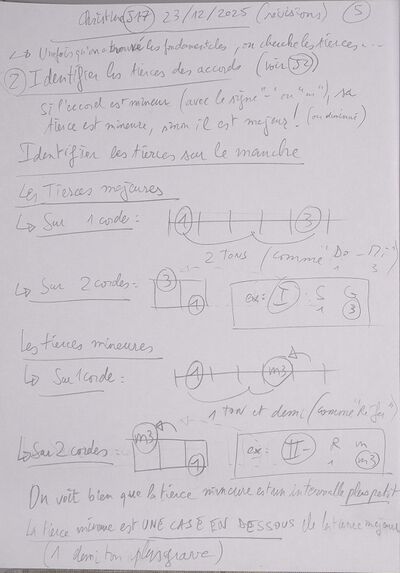 Christine J17 23/12/2025 (révisions) 5
↳ Une fois qu'on a trouvé les fondamentales, on cherche les tierces...
2 Identifier les tierces des accords (voir J2)
Si l'accord est mineur (avec le signe "-" ou "m"), sa
tierce est mineure, sinon il est majeur! (ou diminué)
Identifier les tierces sur le manche
Les Tierces majeures
↳ Sur 1 corde: 1 3
2 Tons (comme "Do - Mi")
1 3
↳ Sur 2 cordes: 3 1 ex: I : S G
1 3
Les tierces mineures
↳ Sur 1 corde: 1 m3
1 ton et demi (comme "Ré Fa")
↳ Sur 2 cordes: m3 1 ex: II- R m
1 m3
On voit bien que la tierce mineure est un intervalle plus petit
La tierce mineure est UNE CASE EN DESSOUS de la tierce majeure
(1 demi ton plus grave)